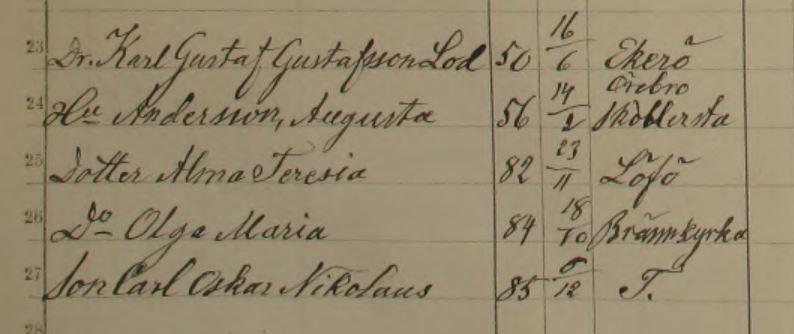 23 Dr. Karl Gustaf Gustafsson Lod 50 16/6 Ekerö
24 Hu Andersson, Augusta 56 14/2 Örebro Sköllersta
25 Dotter Alma Teresia 82 23/11 Lofö
26 Do Olga Maria 84 18/10 Brännkyrka
27 Son Carl Oskar Nikolaus 85 /12 T.
28